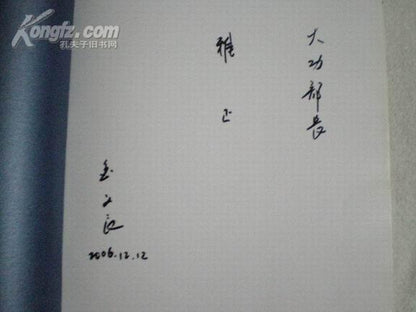 Kongfz.com
孔夫子旧书网
大功部长
雅正
金文良
2006.12.12